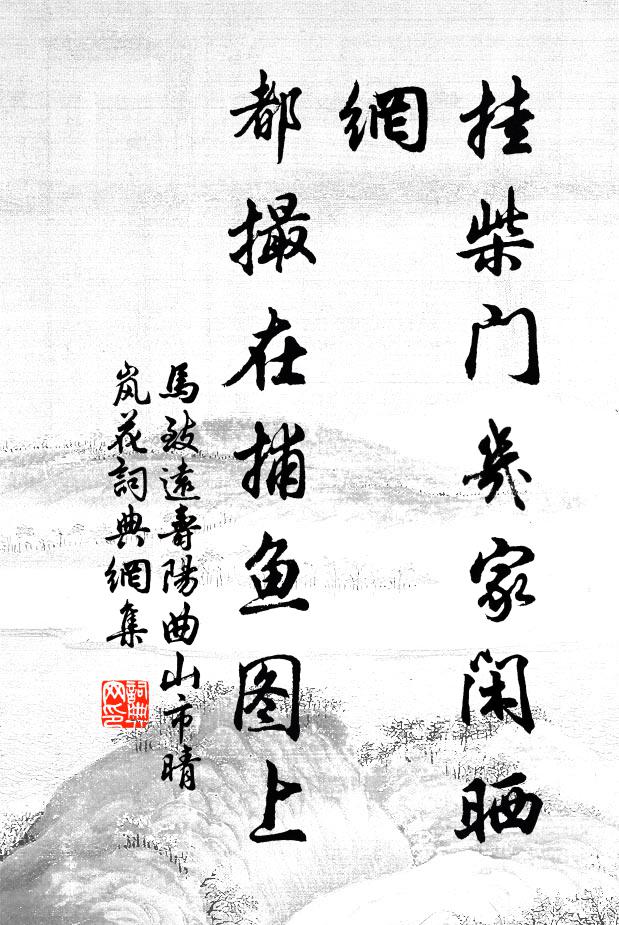 挂柴门幾家闲晒
網
都撮在捕鱼图上
馬致遠壽陽曲山市晴
岚花詞典網集
詞典
网印